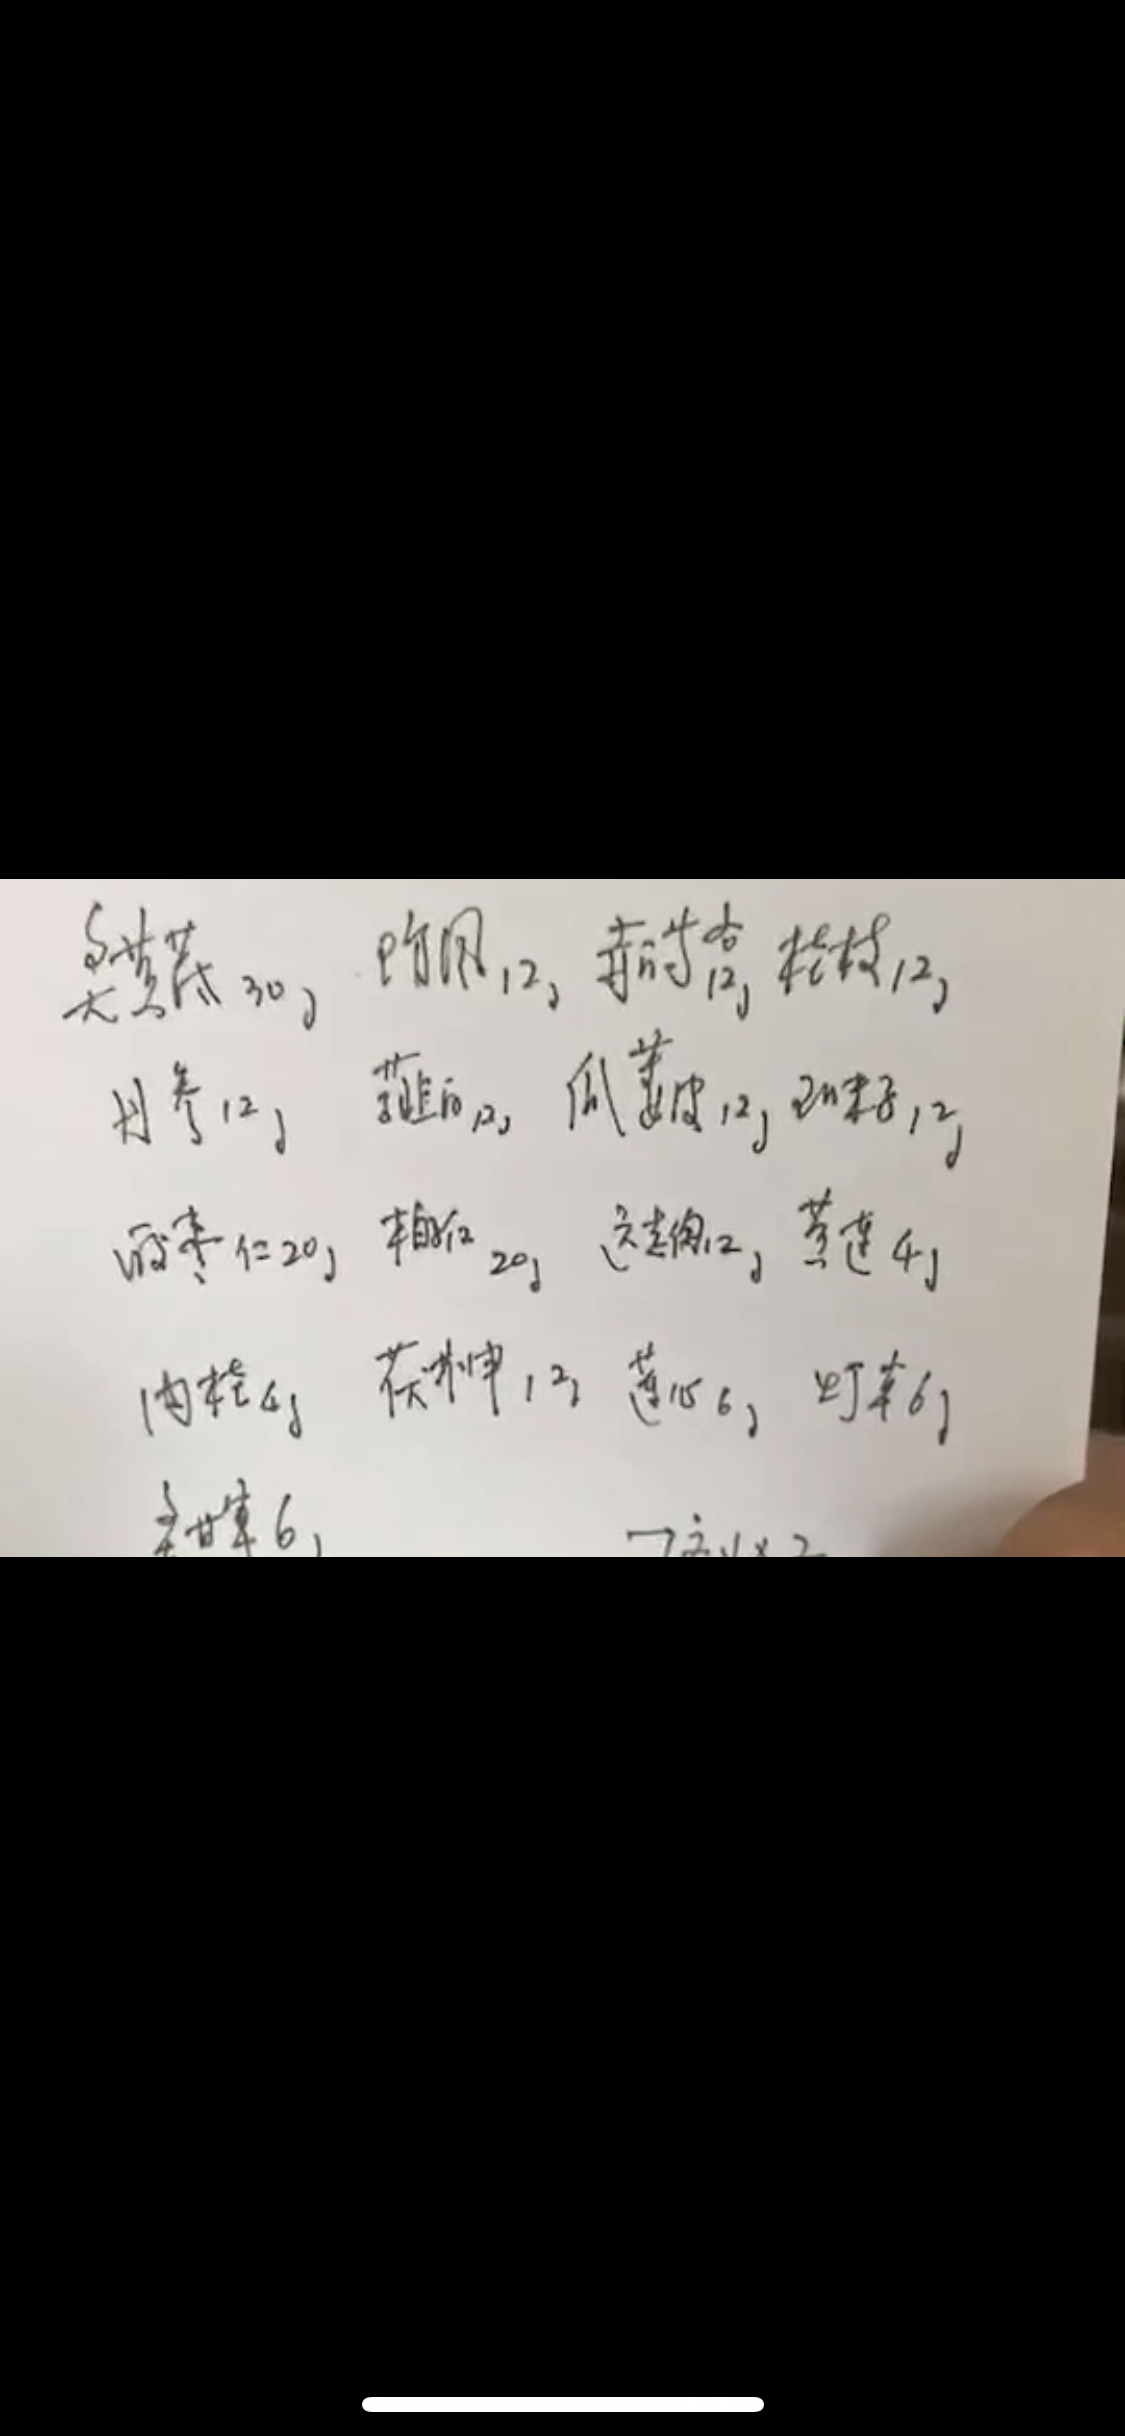 炙黄芪30g 防风12g 赤白芍各12g 桂枝12g
丹参12g 薤白12g 瓜蒌皮12g 12g
酸枣仁20g 柏子仁20g 远志肉12g 黄连4g
肉桂4g 茯神12g 莲心6g 灯草6g
炙甘草6g 7剂